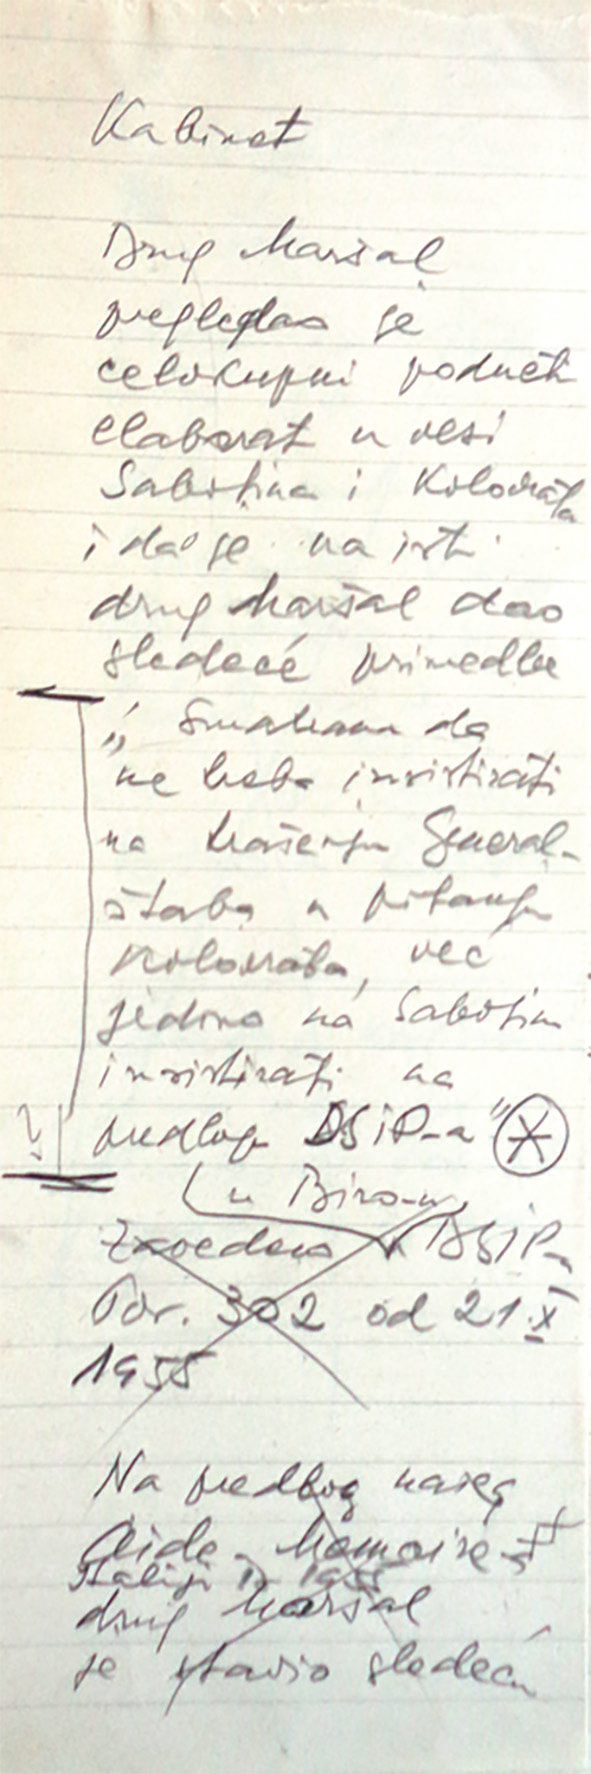 Kabinet
Drug Maršal
pregledao je
celokupni podneti
elaborat u vezi
Sabotina i Kolovrata
i da je na isti
drug Maršal dao
sledeće primedbe
„Smatram da
ne treba insistirati
na traženju General-
štaba u pitanju
Kolovrata, već
jedino na Sabotinu
insistirati na
predlogu DSIP-a"
u Birou
Zavedeno DSIP-a
Pov. 302 od 21.X
1955
Na predlog našeg
Aide-Memoire
Italiji 1955
drug Maršal
je stavio sledeću